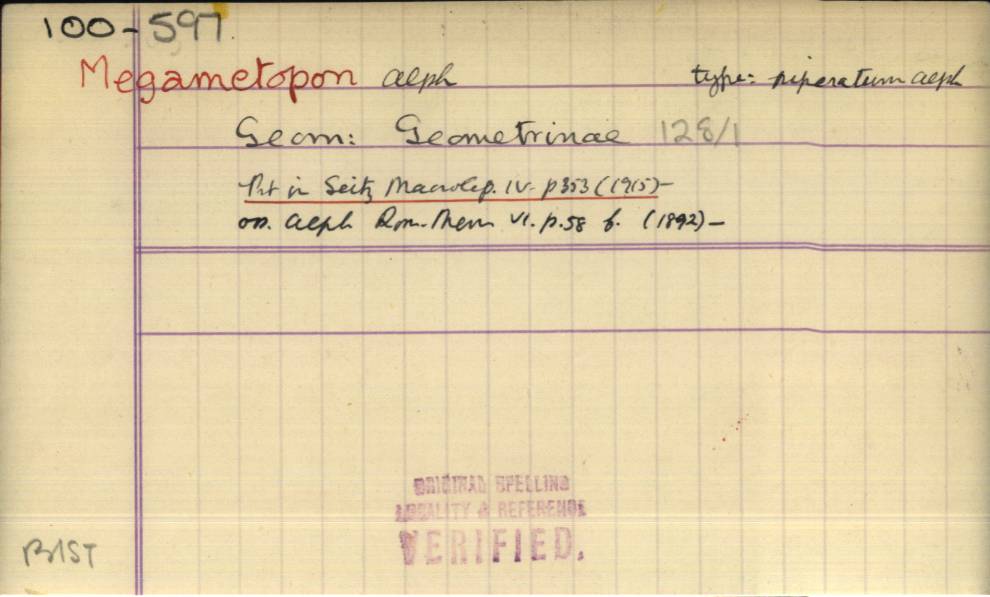 100-597.
Megametopon Alph type: piperatum Alph
Geom: Geometrinae 128/1
Prt in Seitz Macrolep. IV. p353 (1915)-
on. Alph Rom. Mem VI. p.58 f. (1892)-
ORIGINAL SPELLING
LOCALITY & REFERENCE
VERIFIED.
BIST